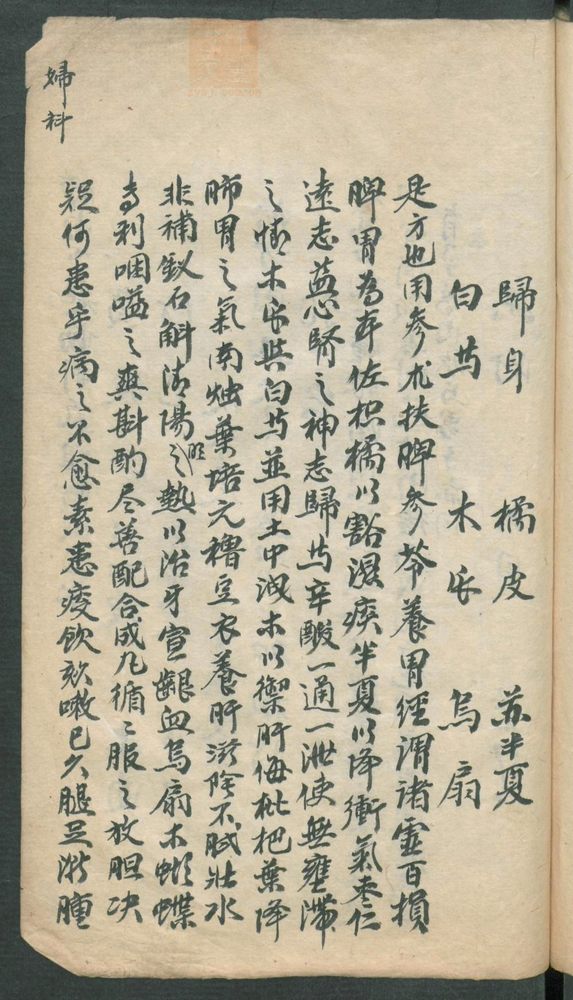 歸身 橘皮 苏半夏
白芍 木瓜 烏扇
是方也用參朮扶脾參苓養胃經謂諸虛百損
脾胃為本佐枳橘以豁濕痰半夏以降衝氣棗仁
遠志益心腎之神志歸芍辛酸一通一泄使無壅滯
之情木瓜與白芍並用土中洩木以禦肝侮枇杷葉降
肺胃之氣南燭葉培元穭豆衣養肝滋陰不膩壯水
非補釵石斛清陽明之熱以治牙宣齦血烏扇木蝴蝶
專利咽嗌之爽斟酌尽善配合成凡循〻服之放胆决
疑何患乎病之不愈素患痰飲欬嗽已久腿足漸腫
婦科